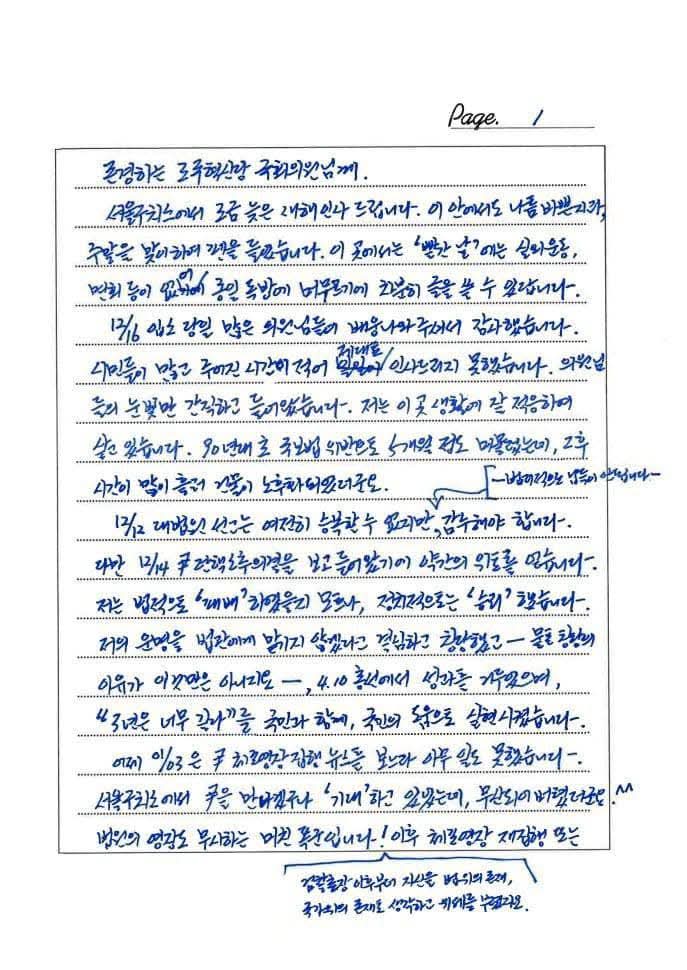 Page. 1
존경하는 조국혁신당 국회의원님께.
서울구치소에서 조금 늦은 새해인사 드립니다. 이 안에서도 나름 바쁜지라,
주말을 맞이하여 펜을 들었습니다. 이 곳에서는 '빨간 날'에는 실외운동,
면회 등이 없어 종일 독방에 머무르기에 차분히 글을 쓸 수 있답니다.
12/16 입소 당일 많은 의원님들이 배웅나와 주셔서 감사했습니다.
시민들이 많고 주어진 시간이 적어 제대로 인사드리지 못했습니다. 의원님
들의 눈빛만 간직하고 들어왔습니다. 저는 이 곳 생활에 잘 적응하여
살고 있습니다. 90년대 초 국보법 위반으로 5개월 정도 머물렀는데, 그후
시간이 많이 흘러 건물이 노후화되었더군요.
12/12 대법원 선고는 여전히 승복할 수 없지만, 감수해야 합니다.
-법리적으로 납득이 안됩니다-
다만 12/14 尹 탄핵소추의결을 보고 들어왔기에 약간의 위로를 얻습니다.
저는 법적으로 '패배'하였을지 모르나, 정치적으로는 '승리'했습니다.
저의 운명을 법관에게 맡기지 않겠다고 결심하고 창당했고 — 물론 창당의
이유가 이것만은 아니지요 —, 4.10 총선에서 성과를 거두었으며,
"3년은 너무 길다"를 국민과 함께, 국민의 도움으로 실현시켰습니다.
어제 01/03은 尹 체포영장 집행 뉴스를 보느라 아무 일도 못했습니다.
서울구치소에서 尹을 만나겠구나 '기대'하고 있었는데, 무산되어 버렸더군요.^^
법원의 영장도 무시하는 미친 폭군입니다! 이후 체포영장 재집행 또는
검찰총장 이후부터 자신을 법 위의 존재,
국가 위의 존재로 생각하고 행세를 부렸지요.